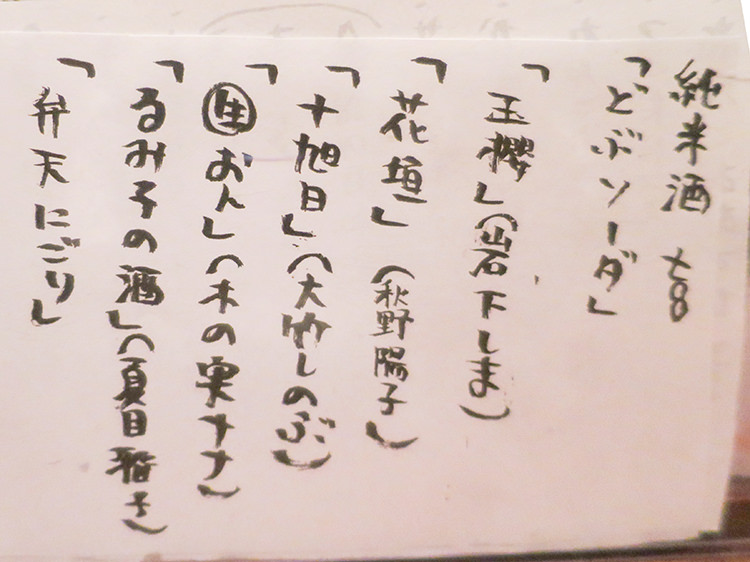 純米酒 700
「どぶソーダ」
「玉櫻」（岩下しま）
「花垣」（秋野陽子）
「十旭日」（大竹しのぶ）
「㊤おん」（木の実ナナ）
「るみ子の酒」（夏目雅子）
「弁天にごり」